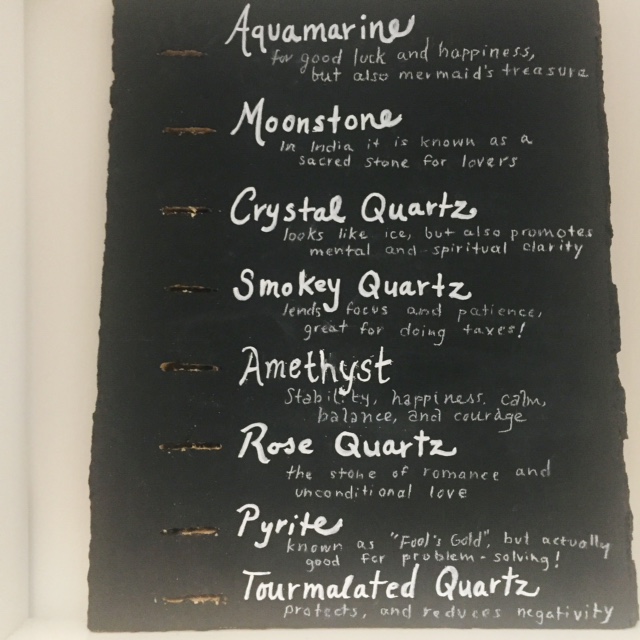 Aquamarine
for good luck and happiness,
but also mermaid's treasure
Moonstone
In India it is known as a
sacred stone for lovers
Crystal Quartz
looks like ice, but also promotes
mental and spiritual clarity
Smokey Quartz
lends focus and patience,
great for doing taxes!
Amethyst
Stability, happiness, calm,
balance, and courage
Rose Quartz
the stone of romance and
unconditional love
Pyrite
known as "Fool's Gold", but actually
good for problem-solving!
Tourmalated Quartz
protects, and reduces negativity